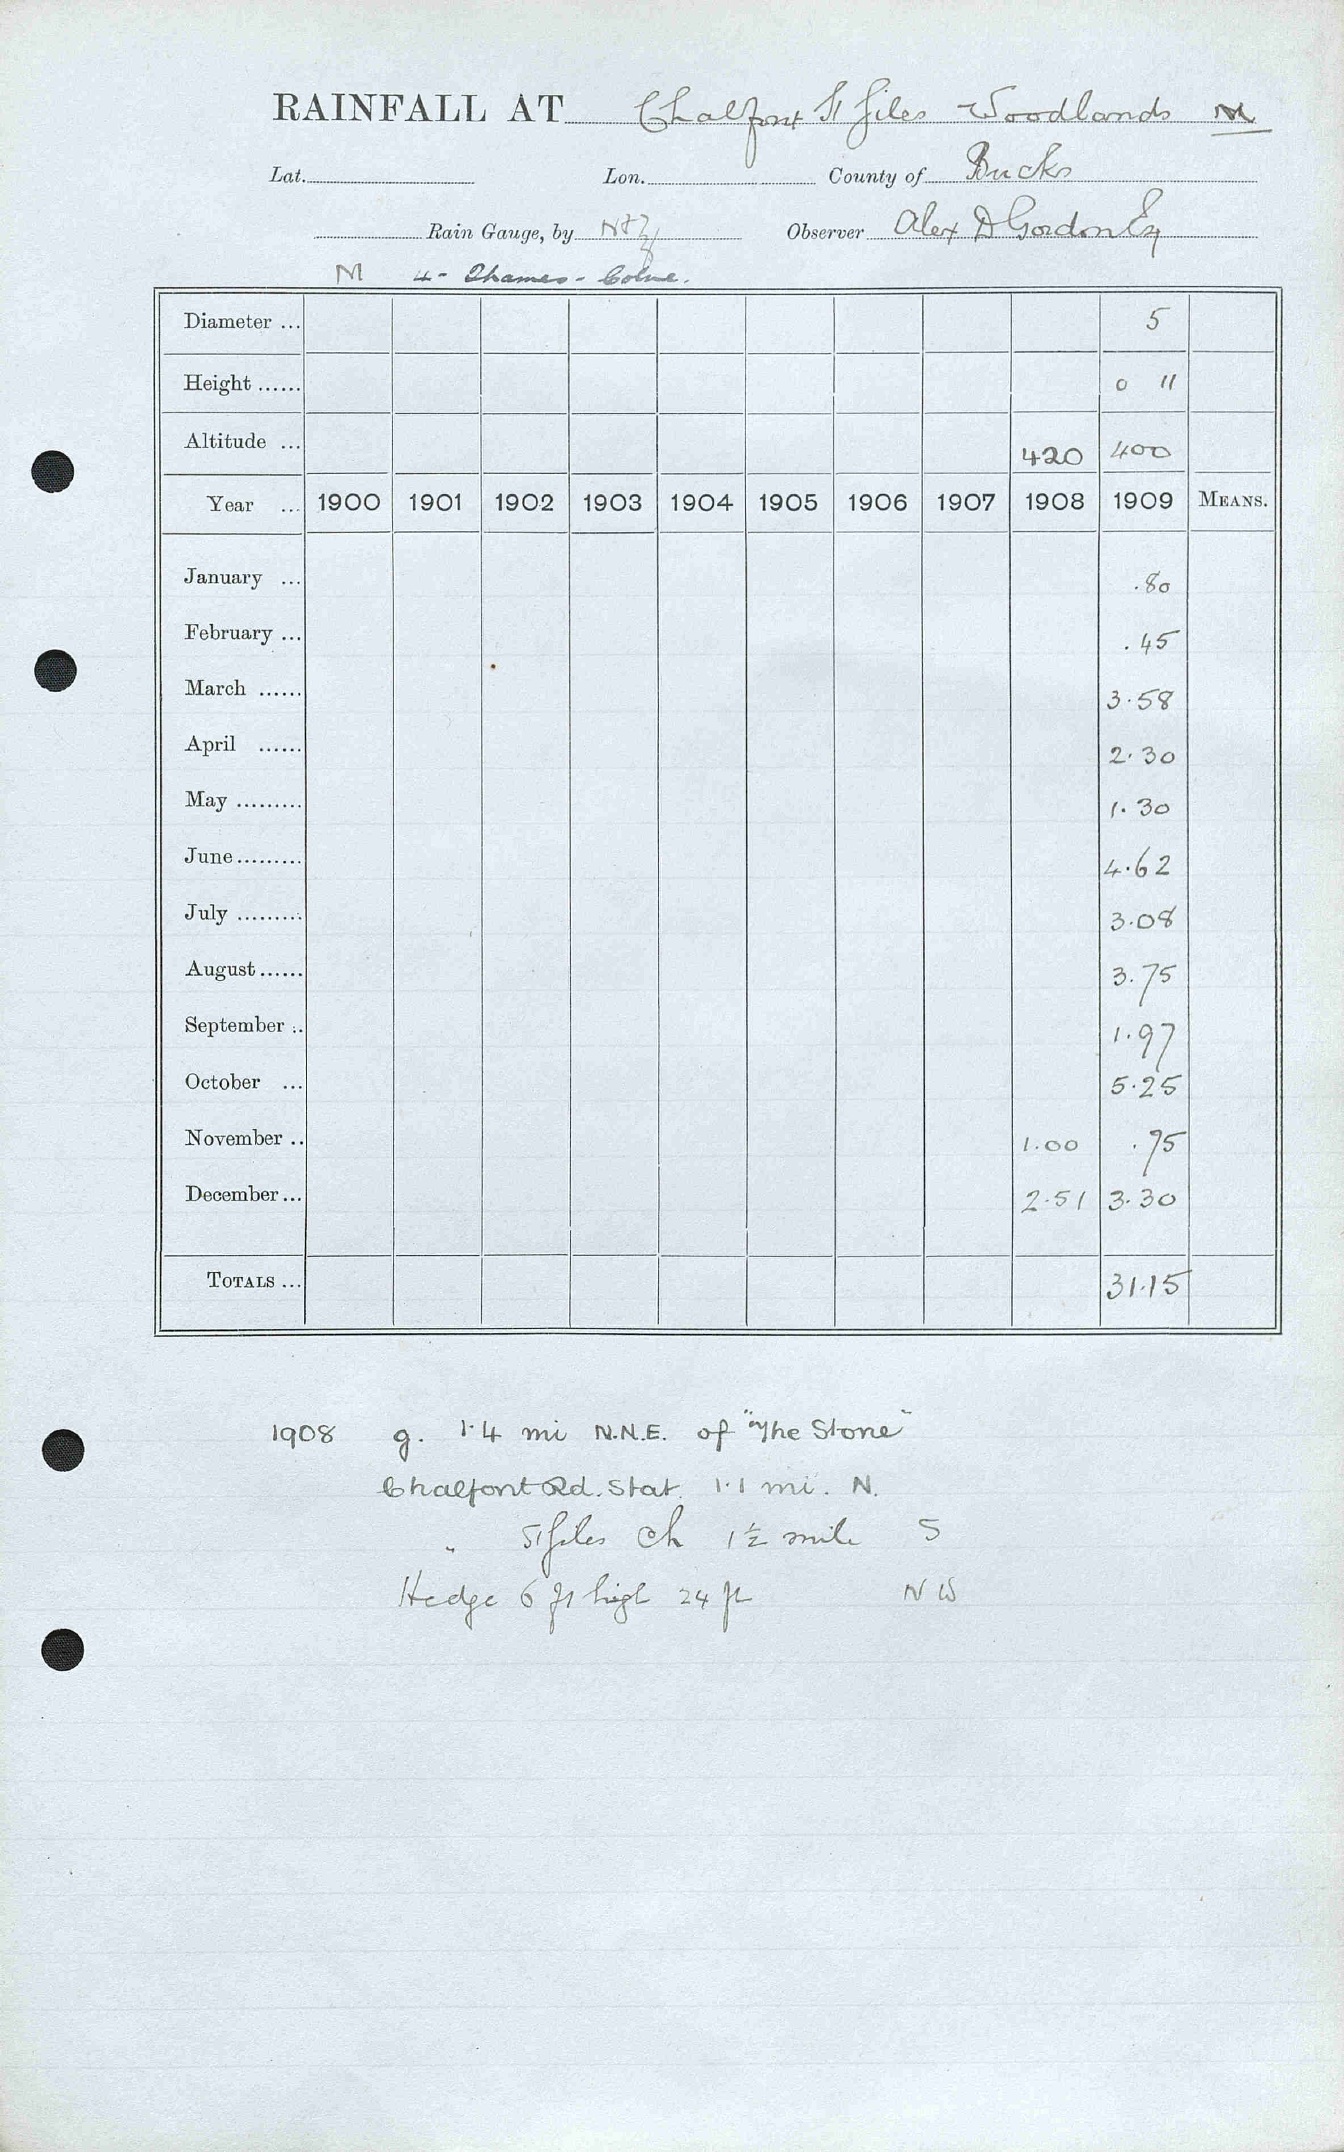 RAINFALL AT Chalfont St Giles Woodlands M
Lat. Lon. County of Bucks
Rain Gauge, by N & Z Observer Alex D Gordon Esq
M 4 - Thames - Colne.
Diameter ... 5
Height ...... 0 11
Altitude ... 420 400
Year ... 1900 1901 1902 1903 1904 1905 1906 1907 1908 1909 MEANS.
January ... .80
February ... .45
March ...... 3.58
April ...... 2.30
May ......... 1.30
June ......... 4.62
July ......... 3.08
August ...... 3.75
September .. 1.97
October ... 5.25
November .. 1.00 .75
December ... 2.51 3.30
TOTALS ... 31.15
1908 g. 1.4 mi N.N.E. of "The Stone"
Chalfont Rd. Stat. 1.1 mi. N.
" St Giles Ch 1½ mile S
Hedge 6 ft high 24 ft NW